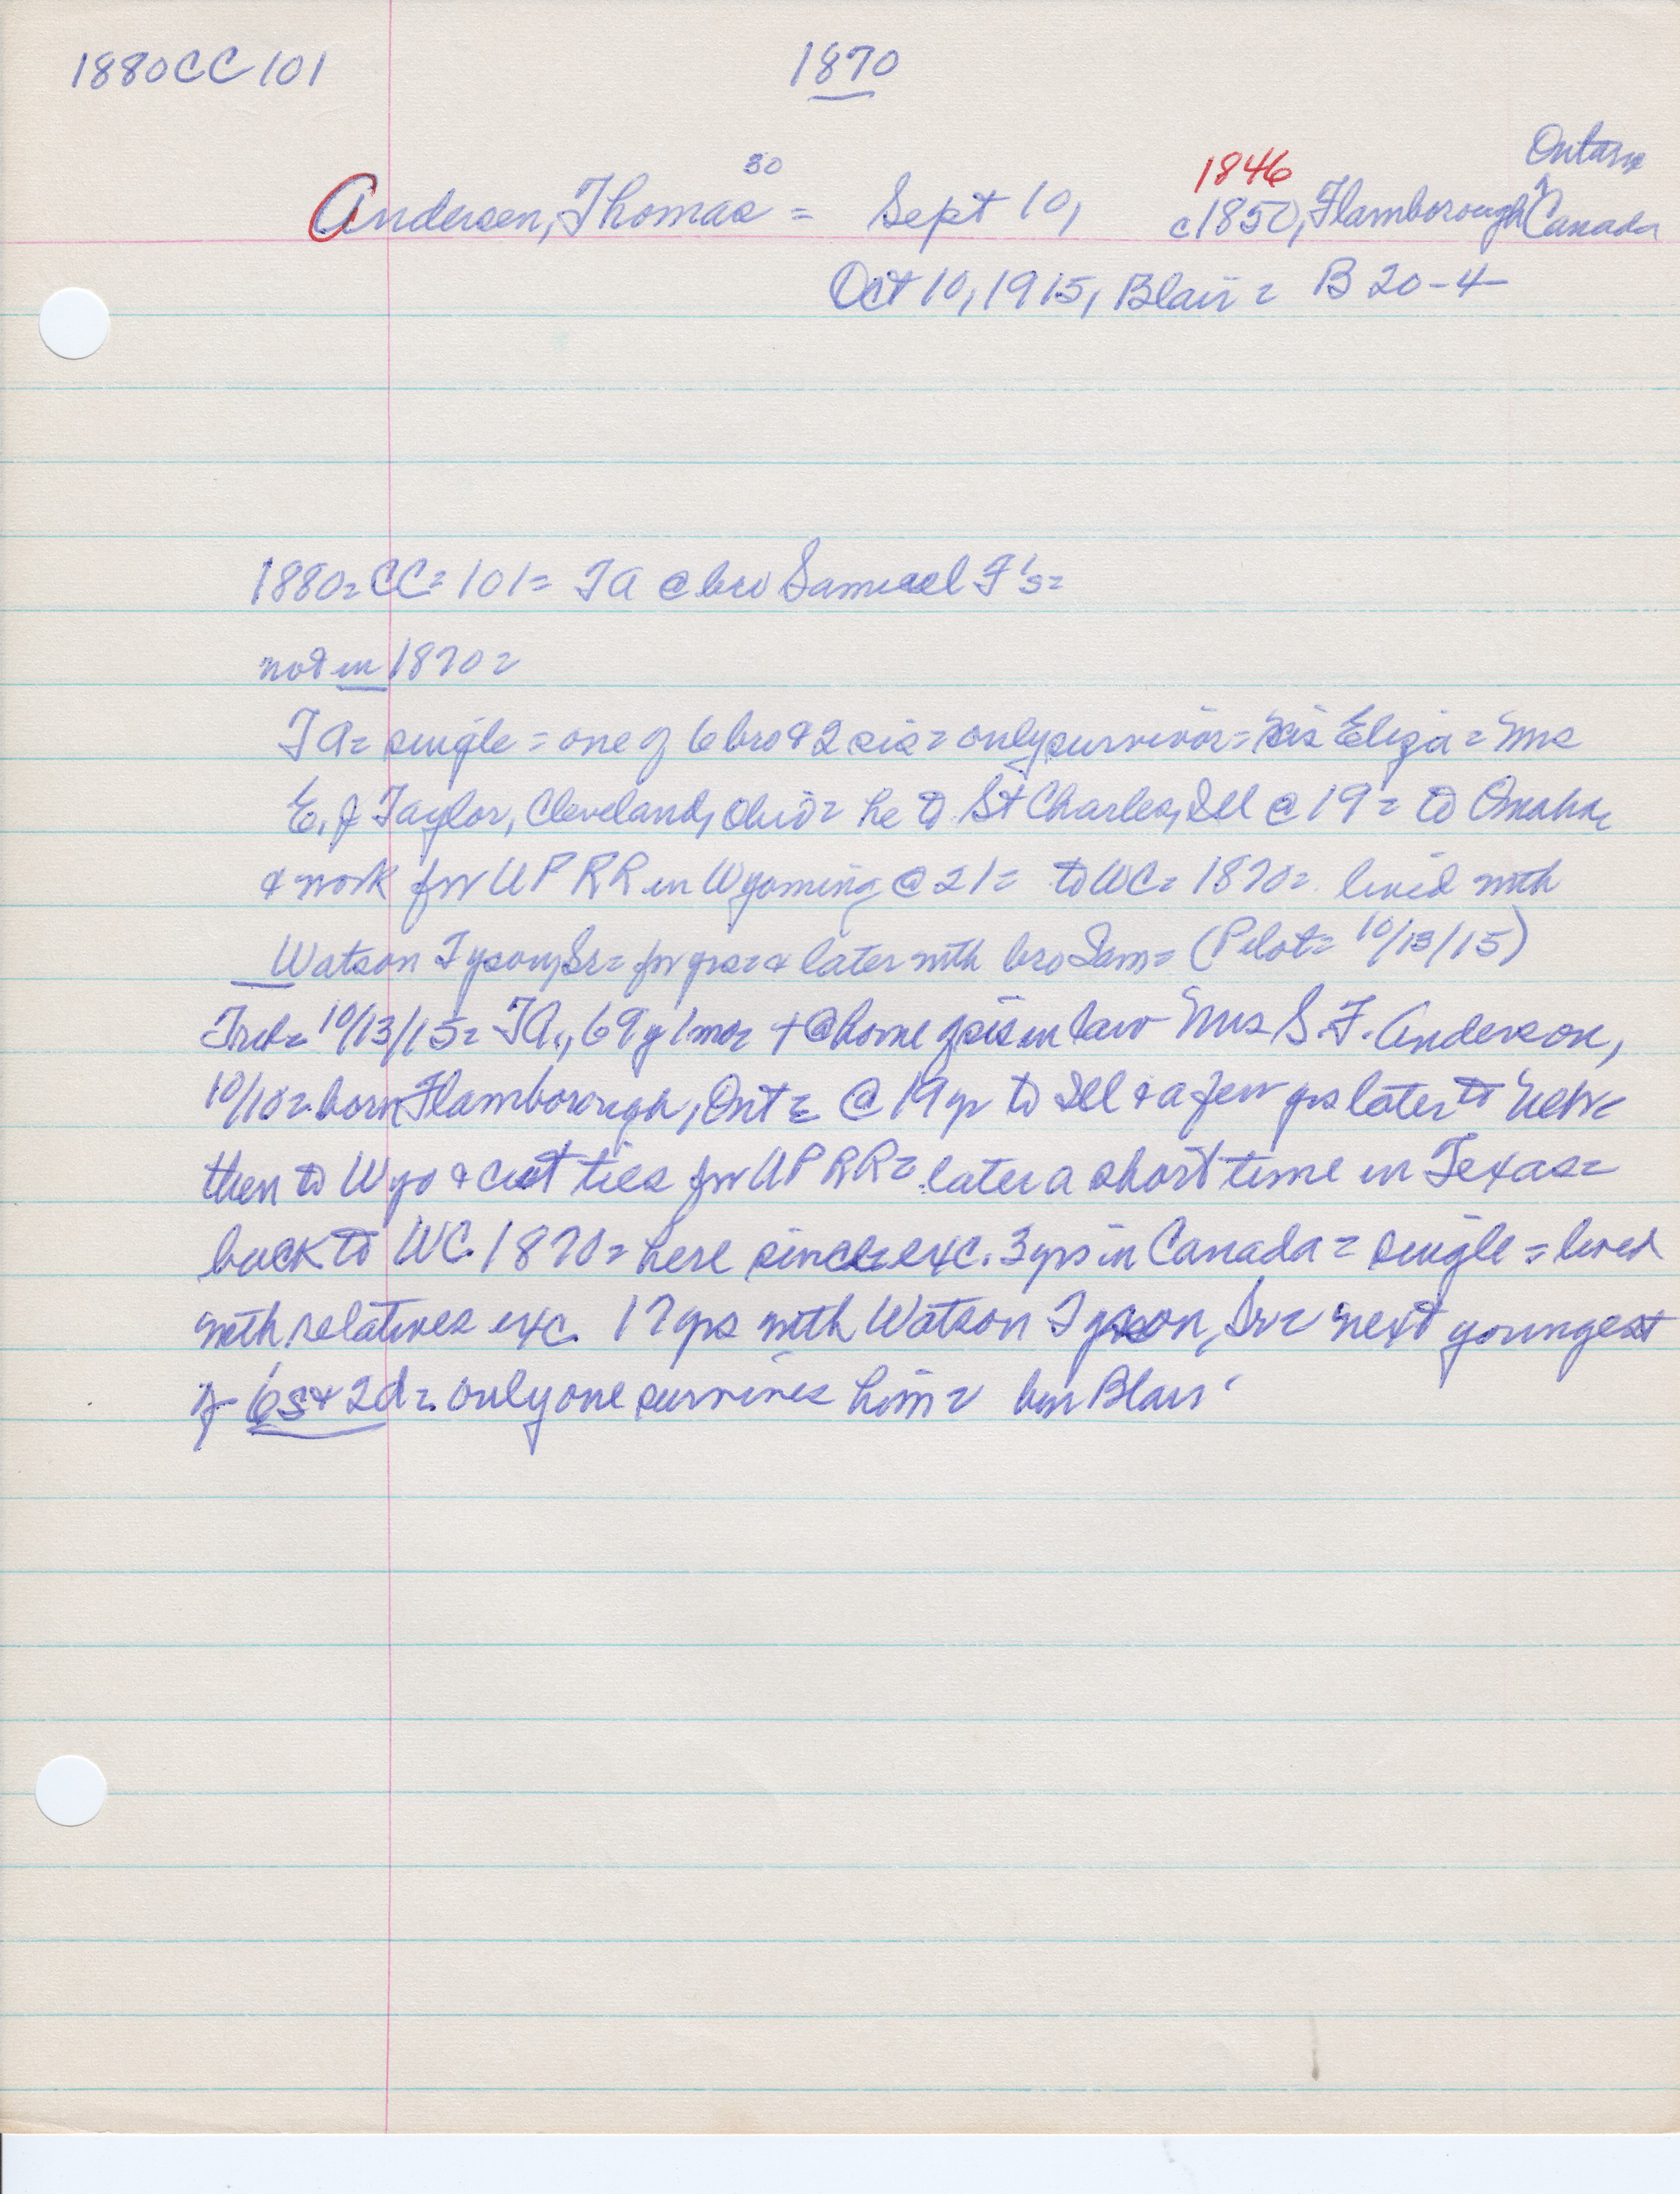 1880CC101
1870
Andersen, Thomas 30 = Sept 10, 1846 c1850, Flamborough Ontario Canada
Oct 10, 1915, Blair = B 20-4
1880=CC=101= TA @ bro Samuel F's=
not in 1870=
TA= single = one of 6 bro & 2 sis = only survivor = sis Eliza = Mrs
E. J Taylor, Cleveland, Ohio = he to St Charles, Ill @ 19 = to Omaha
& work for UPRR in Wyoming @ 21 = to WC = 1870 = lived with
Watson Tyson, Sr = for yrs = & later with bro Sam = (Pilot = 10/13/15)
Trib = 10/13/15 = TA., 69 y 1 mo = + @ home of sis in law Mrs S. F. Anderson,
10/10 = born Flamborough, Ont = @ 19 yr to Ill & a few yrs later to Nebr
then to Wyo & cut ties for UPRR = later a short time in Texas =
back to WC 1870 = here since exc. 3 yrs in Canada = single = lived
with relatives exc. 17 yrs with Watson Tyson, Sr = next youngest
of 6s & 2d = only one survives him = bur Blair